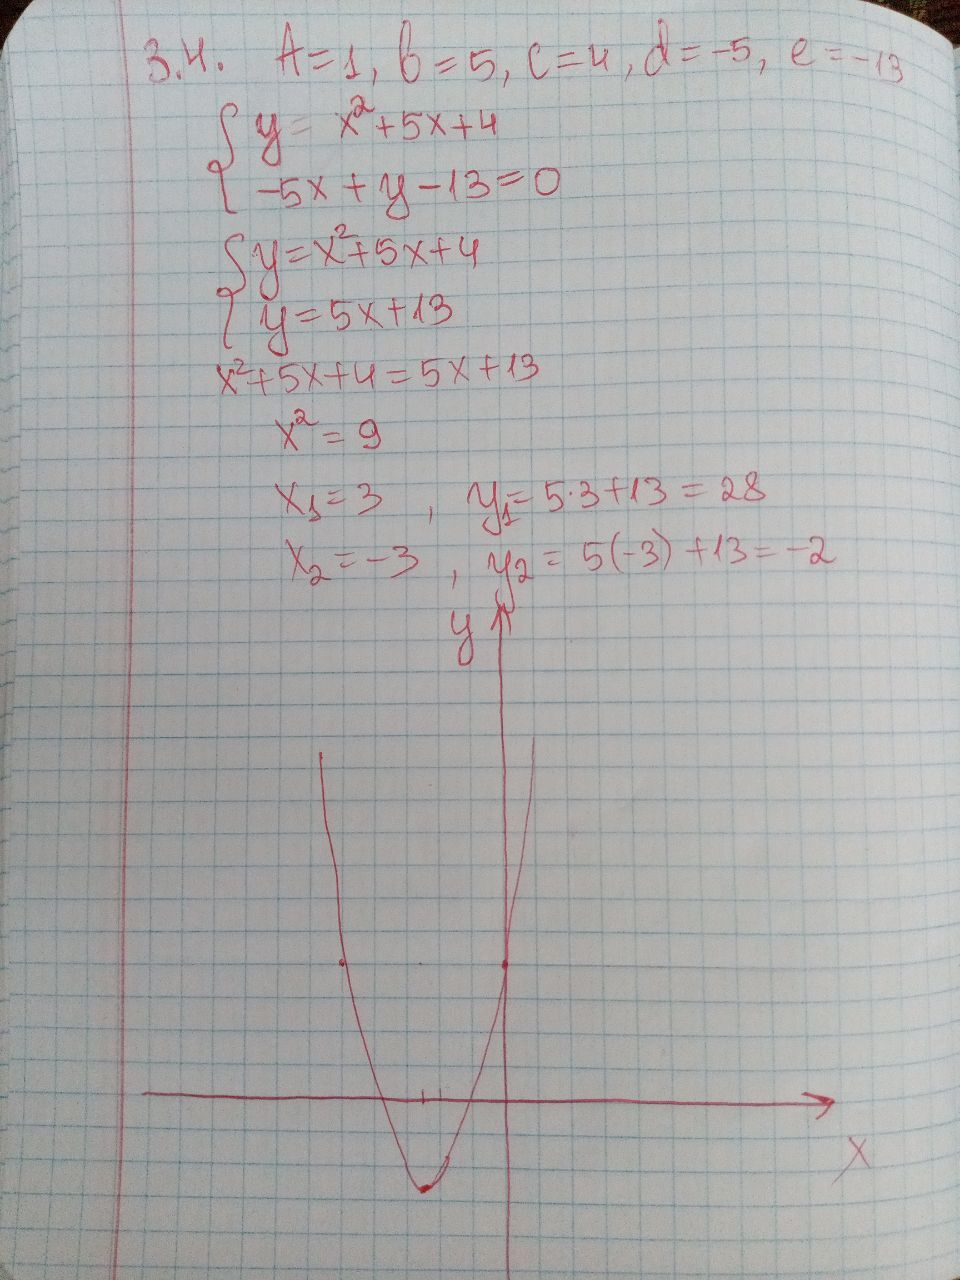 3.4. A=1, b=5, c=4, d=-5, e=-13
y= x²+5x+4
-5x+y-13=0
y=x²+5x+4
y=5x+13
x²+5x+4=5x+13
x²=9
x₁=3 , y₁=5·3+13=28
x₂=-3 , y₂=5(-3)+13=-2
y
x